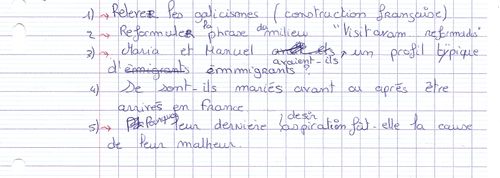 1) → Relever les galicismes (construction française)
2 → Reformuler la phrase du milieu "Visitavam reformados"
3) → Maria et Manuel avaient-ils, un profil typique
d'émigrants émmigrants?
4) Se sont-ils mariés avant ou après être
arrivés en France
5) → Pourquoi leur dernière aspiration désir fût-elle la cause
de leur malheur.